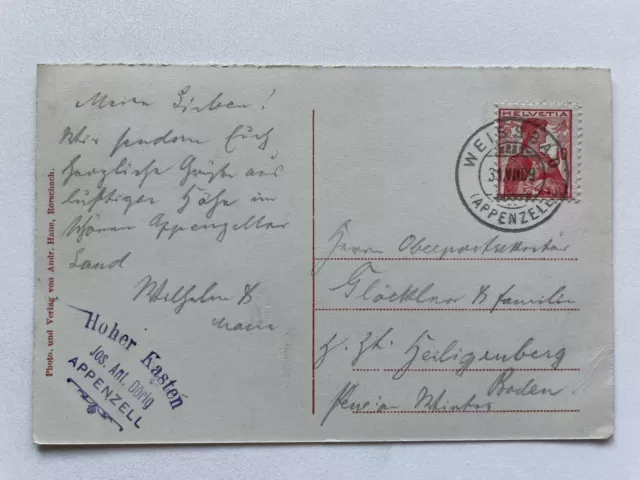 Meine Lieben!
Wir senden Euch
herzliche Grüße aus
luftiger Höhe im
schönen Appenzeller
Land
Wilhelm &
Marie
Hoher Kasten
Jos. Ant. Dörig
APPENZELL
Photo. und Verlag von Andr. Hane, Rorschach.
HELVETIA
WEISSBAD
(APPENZELL)
Herrn Oberpostsekretär
Glöckler & Familie
z. Zt. Heiligenberg
Baden
Pension Winter